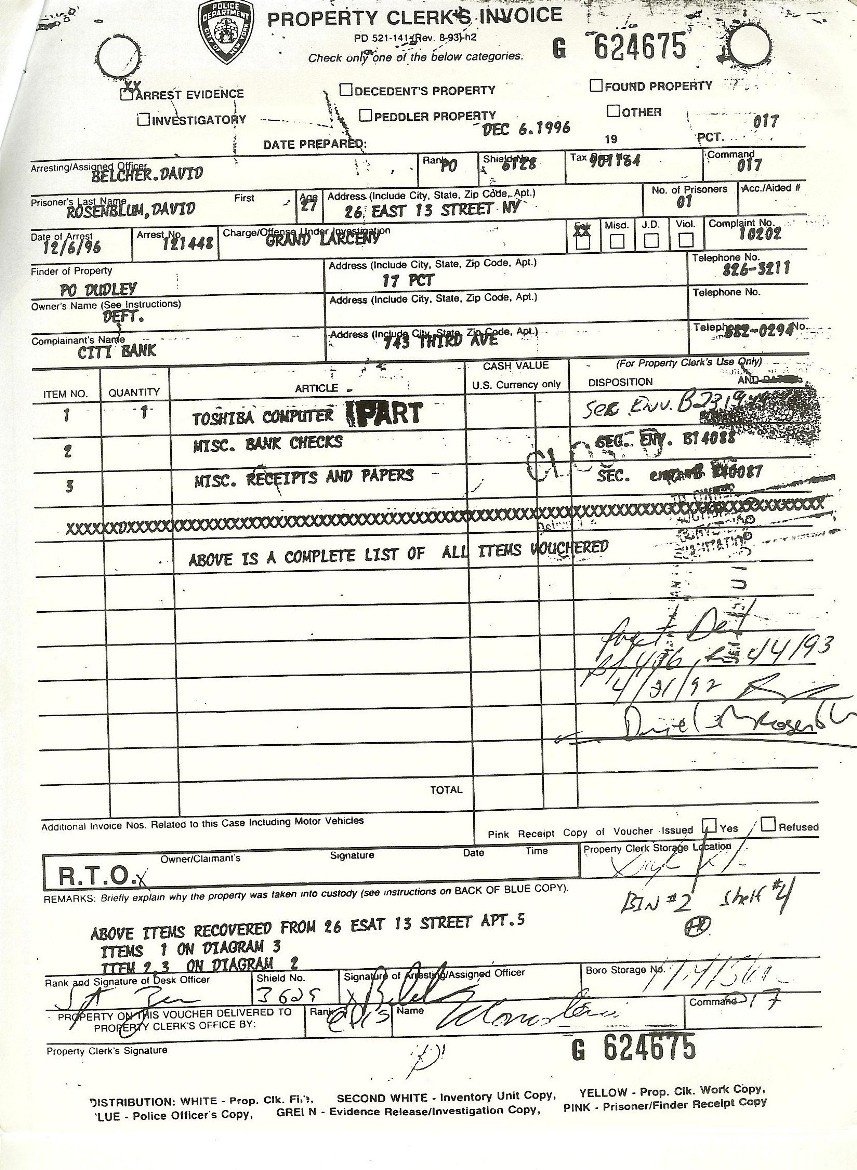 POLICE DEPARTMENT
CITY OF NEW YORK
PROPERTY CLERK'S INVOICE
PD 521-141 (Rev. 8-93)-h2
Check only one of the below categories.
G 624675
XX ARREST EVIDENCE
DECEDENT'S PROPERTY
FOUND PROPERTY
INVESTIGATORY
PEDDLER PROPERTY
OTHER
DATE PREPARED: DEC 6.1996 19 PCT. 017
Arresting/Assigned Officer Rank Shield No. Tax Command
BELCHER, DAVID PO 6128 901784 017
Prisoner's Last Name First Age Address (Include City, State, Zip Code, Apt.) No. of Prisoners Acc./Aided #
ROSENBLUM, DAVID 27 26 EAST 13 STREET NY 01
Date of Arrest Arrest No. Charge/Offense Under Investigation Misd. J.D. Viol. Complaint No.
12/6/96 121448 GRAND LARCENY XX 10202
Finder of Property Address (Include City, State, Zip Code, Apt.) Telephone No.
PO DUDLEY 17 PCT 826-3211
Owner's Name (See Instructions) Address (Include City, State, Zip Code, Apt.) Telephone No.
DEFT.
Complainant's Name Address (Include City, State, Zip Code, Apt.) Telephone No.
CITI BANK 743 THIRD AVE 882-0294
ITEM NO. QUANTITY ARTICLE CASH VALUE U.S. Currency only (For Property Clerk's Use Only) DISPOSITION
1 1 TOSHIBA COMPUTER PART See Env.
2 MISC. BANK CHECKS SEC. ENV. B14088
3 MISC. RECEIPTS AND PAPERS SEC.
CLOSED
XXXXXXXXXXXXXXXXXXXXXXXXXXXXXXXXXXXXXXXXXXXXXXXXXXXXXXXX
ABOVE IS A COMPLETE LIST OF ALL ITEMS VOUCHERED
4/4/93
4/21/92
TOTAL
Additional Invoice Nos. Related to this Case Including Motor Vehicles
Pink Receipt Copy of Voucher Issued Yes Refused
R.T.O. X Owner/Claimant's Signature Date Time Property Clerk Storage Location
REMARKS: Briefly explain why the property was taken into custody (see instructions on BACK OF BLUE COPY).
BIN #2 Shelf #4
ABOVE ITEMS RECOVERED FROM 26 ESAT 13 STREET APT.5
ITEMS 1 ON DIAGRAM 3
ITEM 2,3 ON DIAGRAM 2
Rank and Signature of Desk Officer Shield No. Signature of Arresting/Assigned Officer Boro Storage No.
3629
PROPERTY ON THIS VOUCHER DELIVERED TO PROPERTY CLERK'S OFFICE BY: Rank Name Command 17
Property Clerk's Signature
G 624675
DISTRIBUTION: WHITE - Prop. Clk. File, SECOND WHITE - Inventory Unit Copy, YELLOW - Prop. Clk. Work Copy,
BLUE - Police Officer's Copy, GREEN - Evidence Release/Investigation Copy, PINK - Prisoner/Finder Receipt Copy